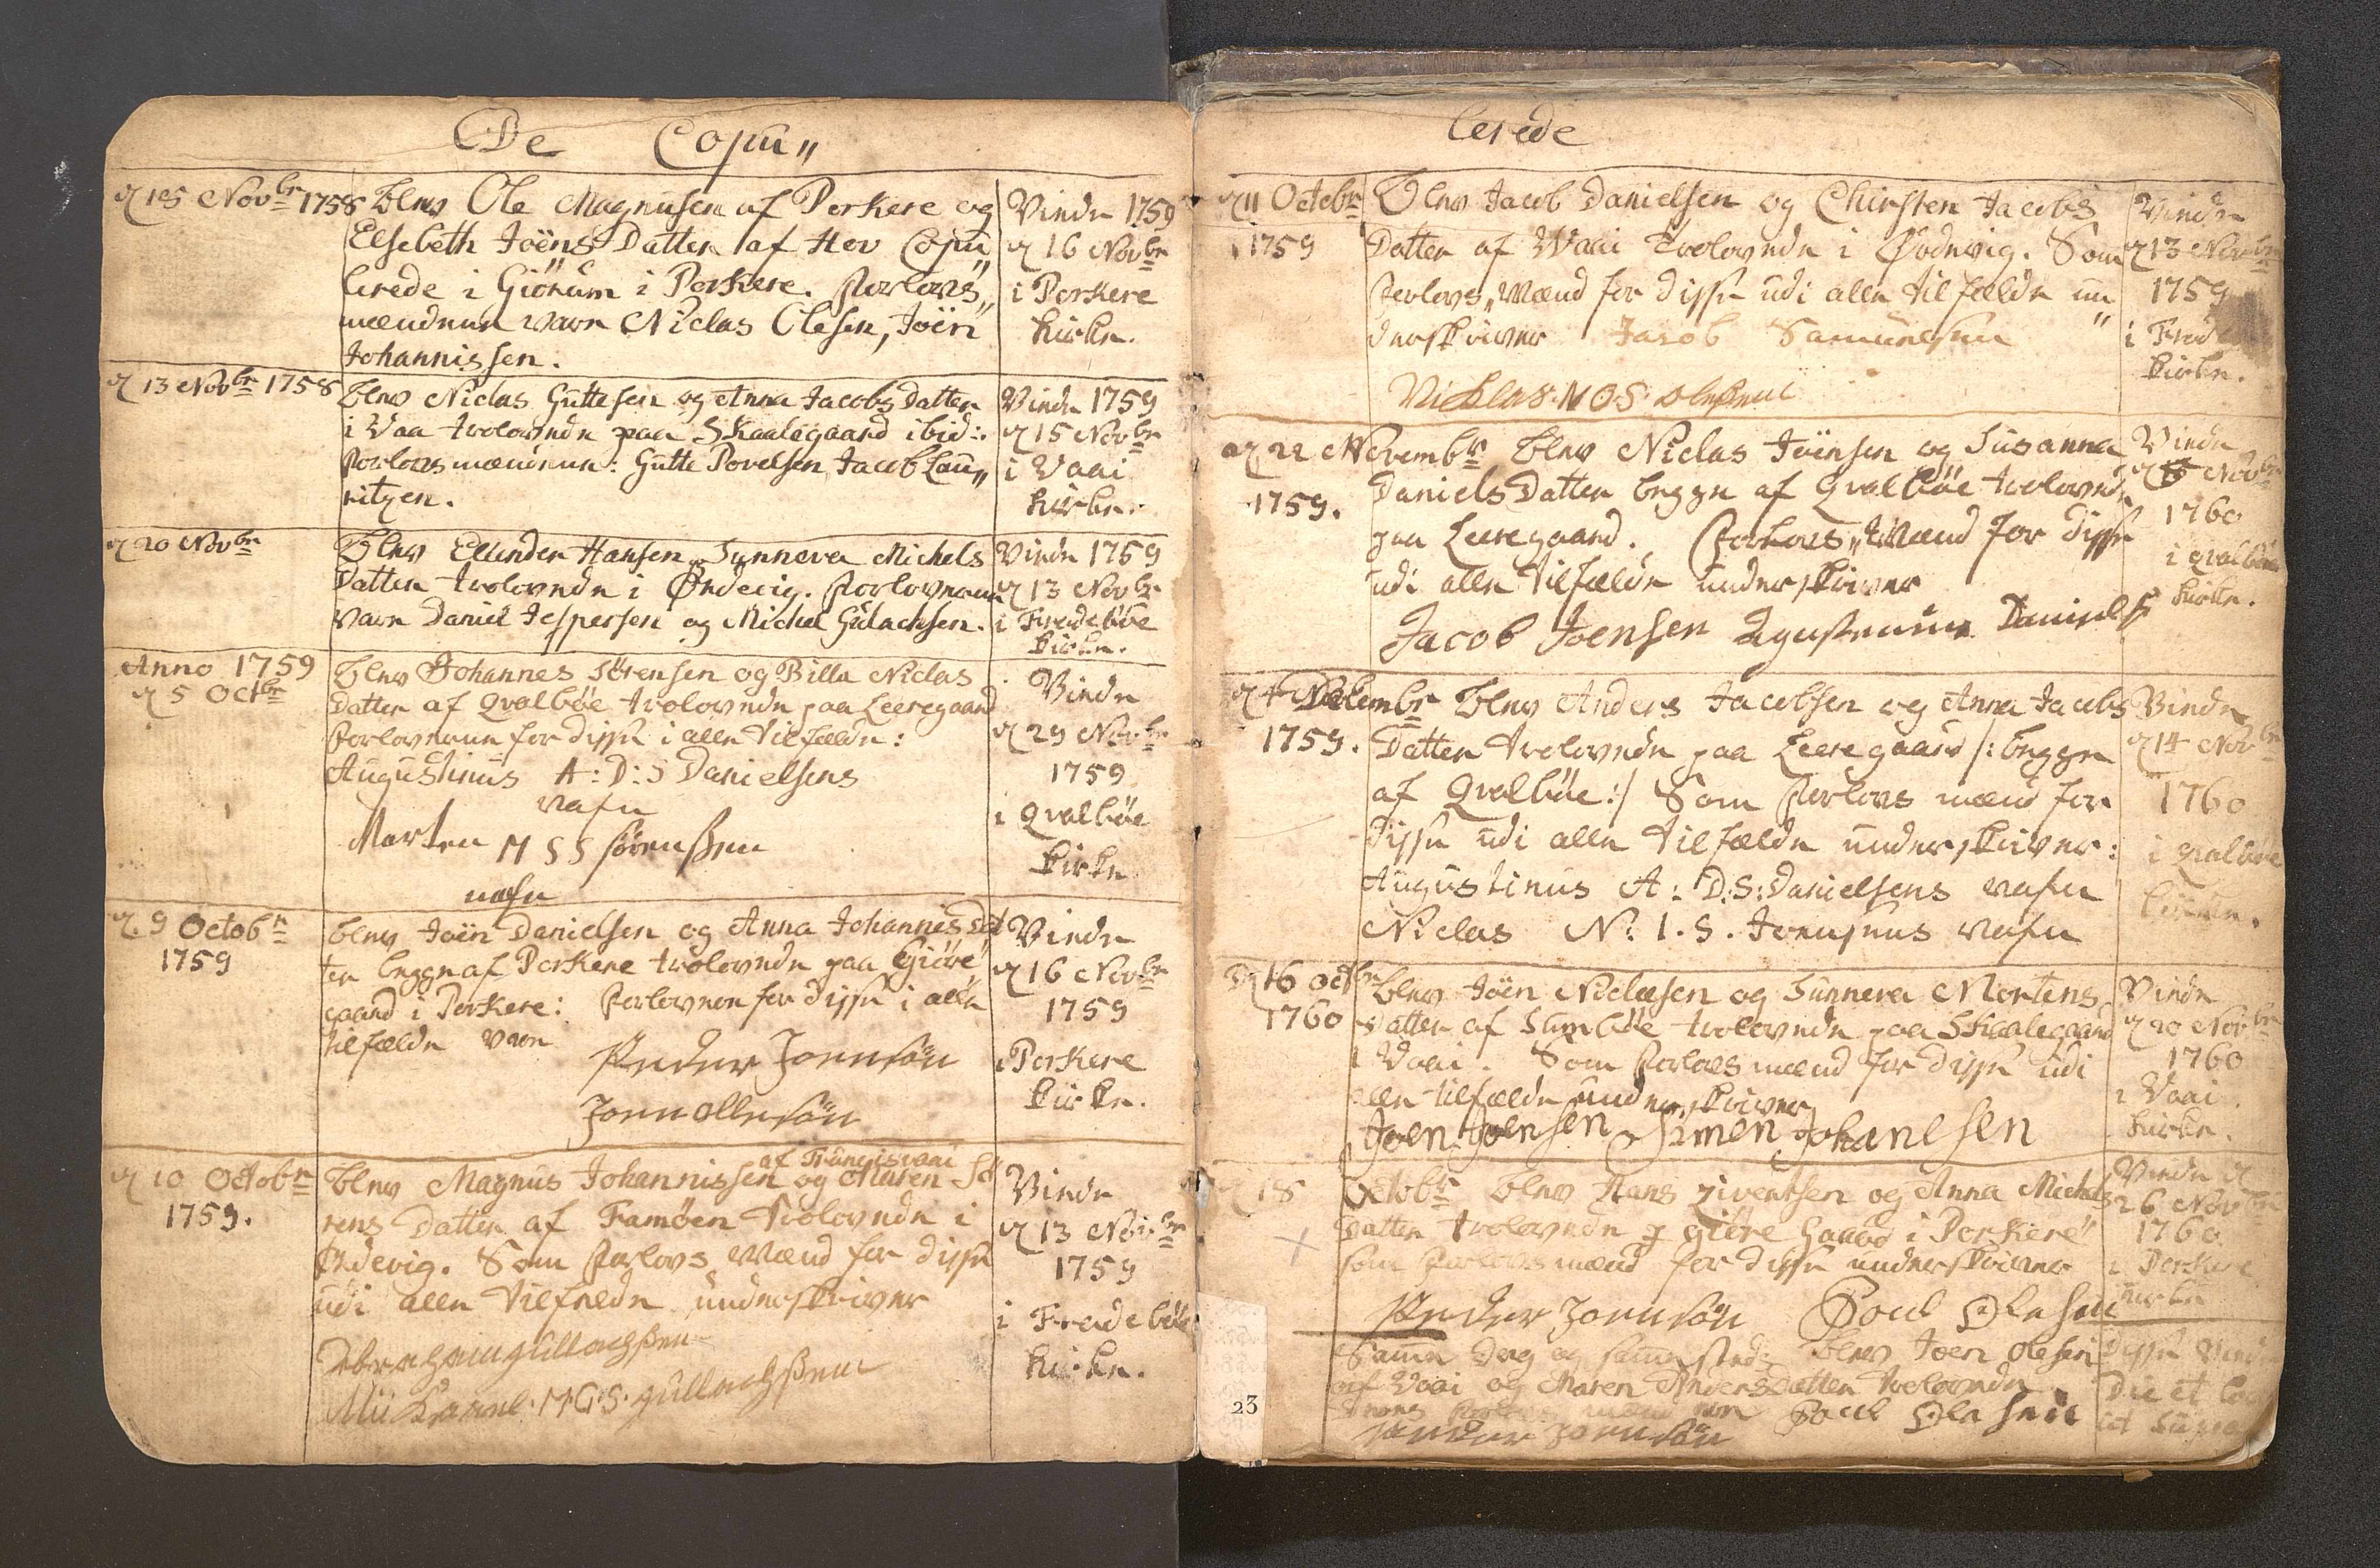 De Copu„
d 105 Novbr 1758 blev Ole Magnusen af Porkere og
Elsebeth Joens Datter af Hov Copu„
lerede i Giörum i Porkere. Forlovs„
mændene vare Niclas Olesen, Joen
Johannissen.
Viede 1759
d 16 Novbr
i Porkere
Kirke.
d 13 Novbr 1758 blev Niclas Guttesen og Anna Jacobs Datter
i Vaa trolovede paa Skaalegaard ibid:.
Forlovsmændene: Gutte Povelsen, Jacob Lau„
ritzen.
Viede 1759
d 15 Novbr
i Vaai
Kirke.
d 20 Novbr
blev Ellinder Hansen Sunneva Michels
Datter trolovede i Ördevig. Forloverne
vare Daniel Jespersen og Michel Gulachsen.
Viede 1759
d 13 Novbr
i Frodeböe
Kirke.
Anno 1759
d 5 Octbr
blev Johannes Sörensen og Billa Niclas
Datter af Qvalböe trolovede paa Leeregaard
Forloverne for disse i alle Tilfælde:
Augustinus A: D: S Danielsens
nafn
Morten M S S Sörensßen
nafn
Viede
d 29 Novbr
1759
i Qvalböe
Kirke
d. 9 Octobr
1759
blev Joen Danielsen og Anna Johannis Dat
ter begge af Porkere trolovede paa Giöre
gaard i Porkere: Forlovere for disse i alle
tilfælde vare
Peder Joensön
Joen ollesön
Viede
d 16 Novbr
1759
i Porkere
Kirke.
d 10 Octobr
1759.
af Frangisvaai
blev Magnus Johannissen og Maren Sö
rens Datter af Famöen trolovede i
Ördevig. Som Forlovs Mænd for disse
udi alle Tilfælde underskriver
Abraham gullachßen
M G S gullachßen
Viede
d 13 Novbr
1759
i Frodeböe
Kirke.
lerede
d 11 Octobr
1759
Blev Jacob Danielsen og Chirsten Jacobs
Datter af Waai Trolovede i Ördevig. Som
Forlovs„Mænd for disse udi alle tilfælde un„
derskriver Jacob Samuelsen
Nicklas N O S oleßens
Viede
d 13 Novbr
1759
i Frod
Kirke.
d 22 Novembr
1759.
blev Niclas Joensen og Susanna
Daniels Datter begge af Qvalböe trolovede
paa Leeregaard. Forlovs„Mænd for disse
udi alle tilfælde underskriver
Jacob Joensen Agustinus Daniels
Viede
d Novbr
1760
i qvalböe
Kirke.
d 4 Decembr
1759.
blev Anders Jacobsen og Anna Jacobs
Datter trolovede paa Leeregaard /: begge
af Qvalböe :/ Som Forlovs mænd for
disse udi alle tilfælde underskriver:
Augustinus A: D: S: Danielsens nafn
Niclas N: I. S. Joensens nafn
Viede
d 14 Novbr
1760
i qvalböe
Kirke.
d 16 octbr
1760
blev Joen Niclasen og Sunneva Mortens
Datter af Sumböe trolovede paa Skaalegaard
i Vaai. Som Forlovsmænd for disse udi
alle tilfælde underskriver
Joen Joensen Simen Johanesen
Viede
d 20 Novbr
1760
i Vaai
Kirke.
d 18 Octobr blev Hans Ziventsen og Anna Michels
Datter trolovede p giöre Gaard i Porkere
som Forlovsmænd for disse underskriver
Peder Joensön Poul Olesen
Viede d
26 Novbr
1760
i Porkere
Kirke
Samme Dag og samme sted blev Joen Olesen
af Vaai og Maren Anders Datter trolovede
Poul Olesen
Peder Joensön
disse Viede
Die et lo
co supra
23